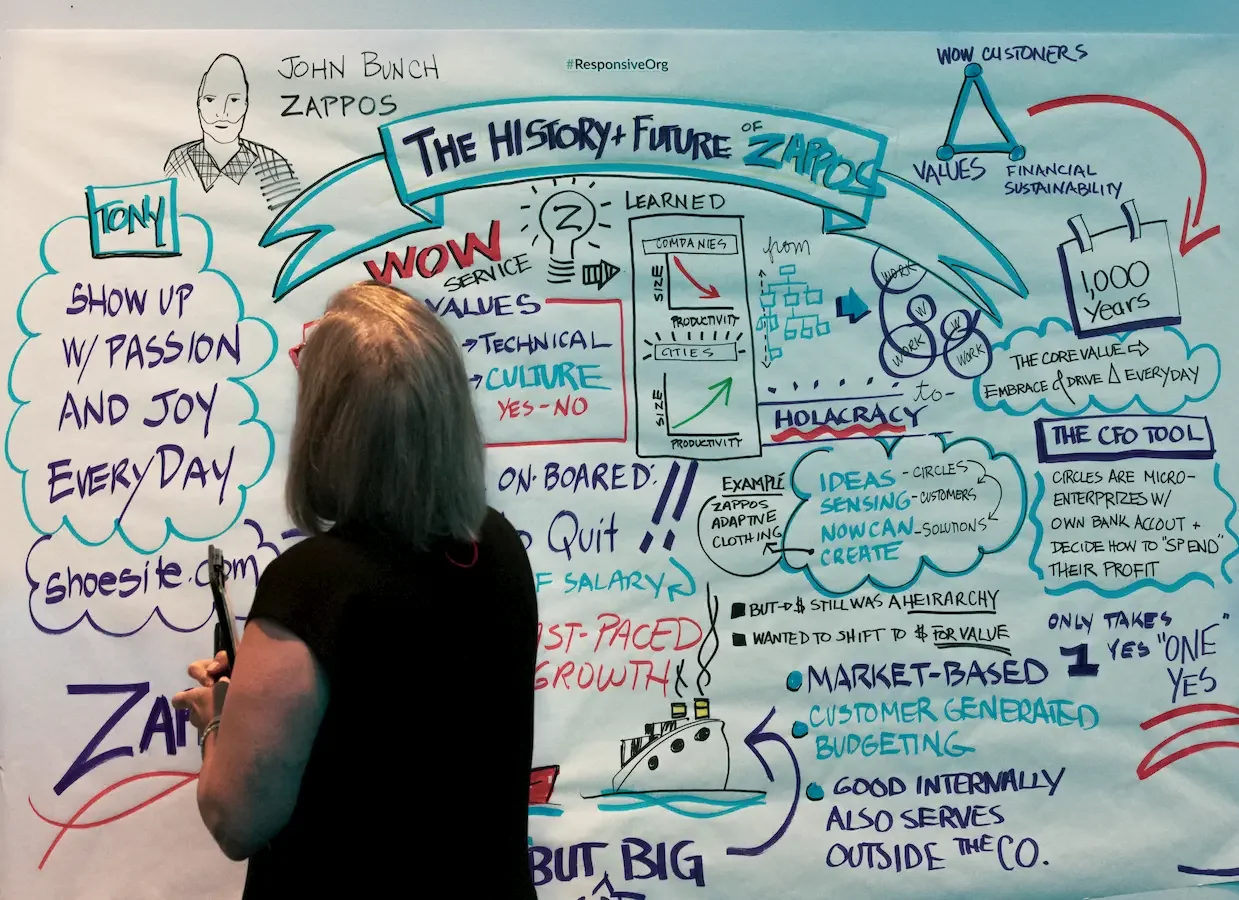 JOHN BUNCH
ZAPPOS
#ResponsiveOrg
THE HISTORY + FUTURE OF ZAPPOS
WOW CUSTOMERS
VALUES
FINANCIAL
SUSTAINABILITY
1,000
Years
TONY
SHOW UP
W/ PASSION
AND JOY
EVERYDAY
shoesite.com
WOW
SERVICE
Z
VALUES
→TECHNICAL
→CULTURE
YES-NO
LEARNED
COMPANIES
SIZE
PRODUCTIVITY
CITIES
SIZE
PRODUCTIVITY
from
WORK
W
W
WORK
WORK
to-
HOLACRACY
THE CORE VALUE ⇨
EMBRACE & DRIVE Δ EVERYDAY
THE CFO TOOL
CIRCLES ARE MICRO-
ENTERPRIZES W/
OWN BANK ACCOUT +
DECIDE HOW TO "SPEND"
THEIR PROFIT
ON-BOARED:
!!
Quit
SALARY
GROWTH
EXAMPLE
ZAPPOS
ADAPTIVE
CLOTHING
IDEAS - CIRCLES
SENSING - CUSTOMERS
NOW CAN - SOLUTIONS
CREATE
BUT→$ STILL WAS A HEIRARCHY
WANTED TO SHIFT TO $ FOR VALUE
MARKET-BASED
CUSTOMER GENERATED
BUDGETING
GOOD INTERNALLY
ALSO SERVES
OUTSIDE THE CO.
ONLY TAKES
1 YES "ONE"
YES
BUT BIG